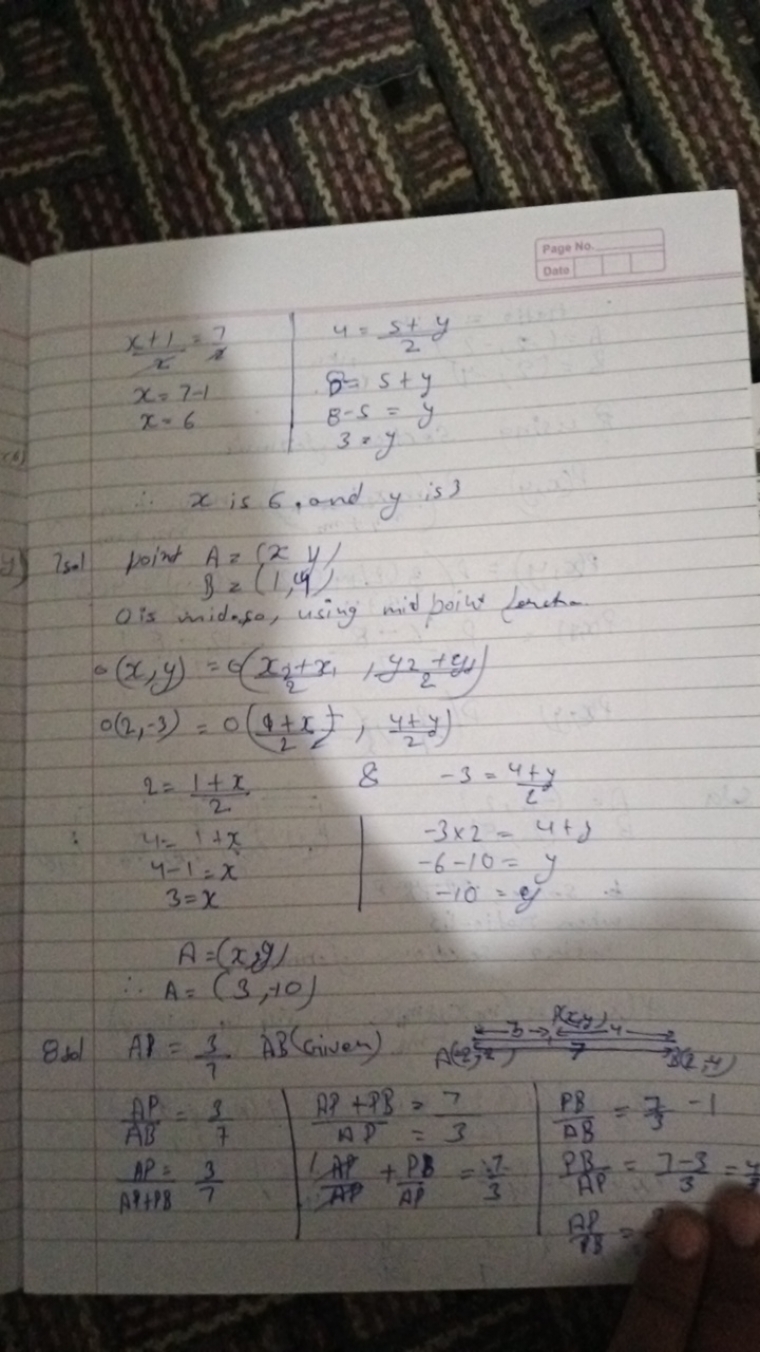 Page No.
Date
x+1/x = 7/2
4 = 5+y/2
x = 7-1
8 = 5+y
x = 6
8-5 = y
3 = y
∴ x is 6, and y is 3
7sol point A = (x y)
B = (1,4)
O is mid, so, using mid point
O(x,y) = O(x2+x1/2, y2+y1/2)
O(2,-3) = O(1+x/2, 4+y/2)
2 = 1+x/2 & -3 = 4+y/2
4 = 1+x
-3×2 = 4+y
4-1 = x
-6-10 = y
3 = x
-10 = y
A = (x,y)
∴ A = (3,-10)
8sol AP = 3/7 AB (Given)
P(x,y)
3 4
7
B(2,-4)
AP/AB = 3/7
AP/AP+PB = 3/7
AP+PB/AP = 7/3
AP/AP + PB/AP = 7/3
PB/AB = 7/3 - 1
PB/AP = 7-3/3 = 4/3
AP/PB =